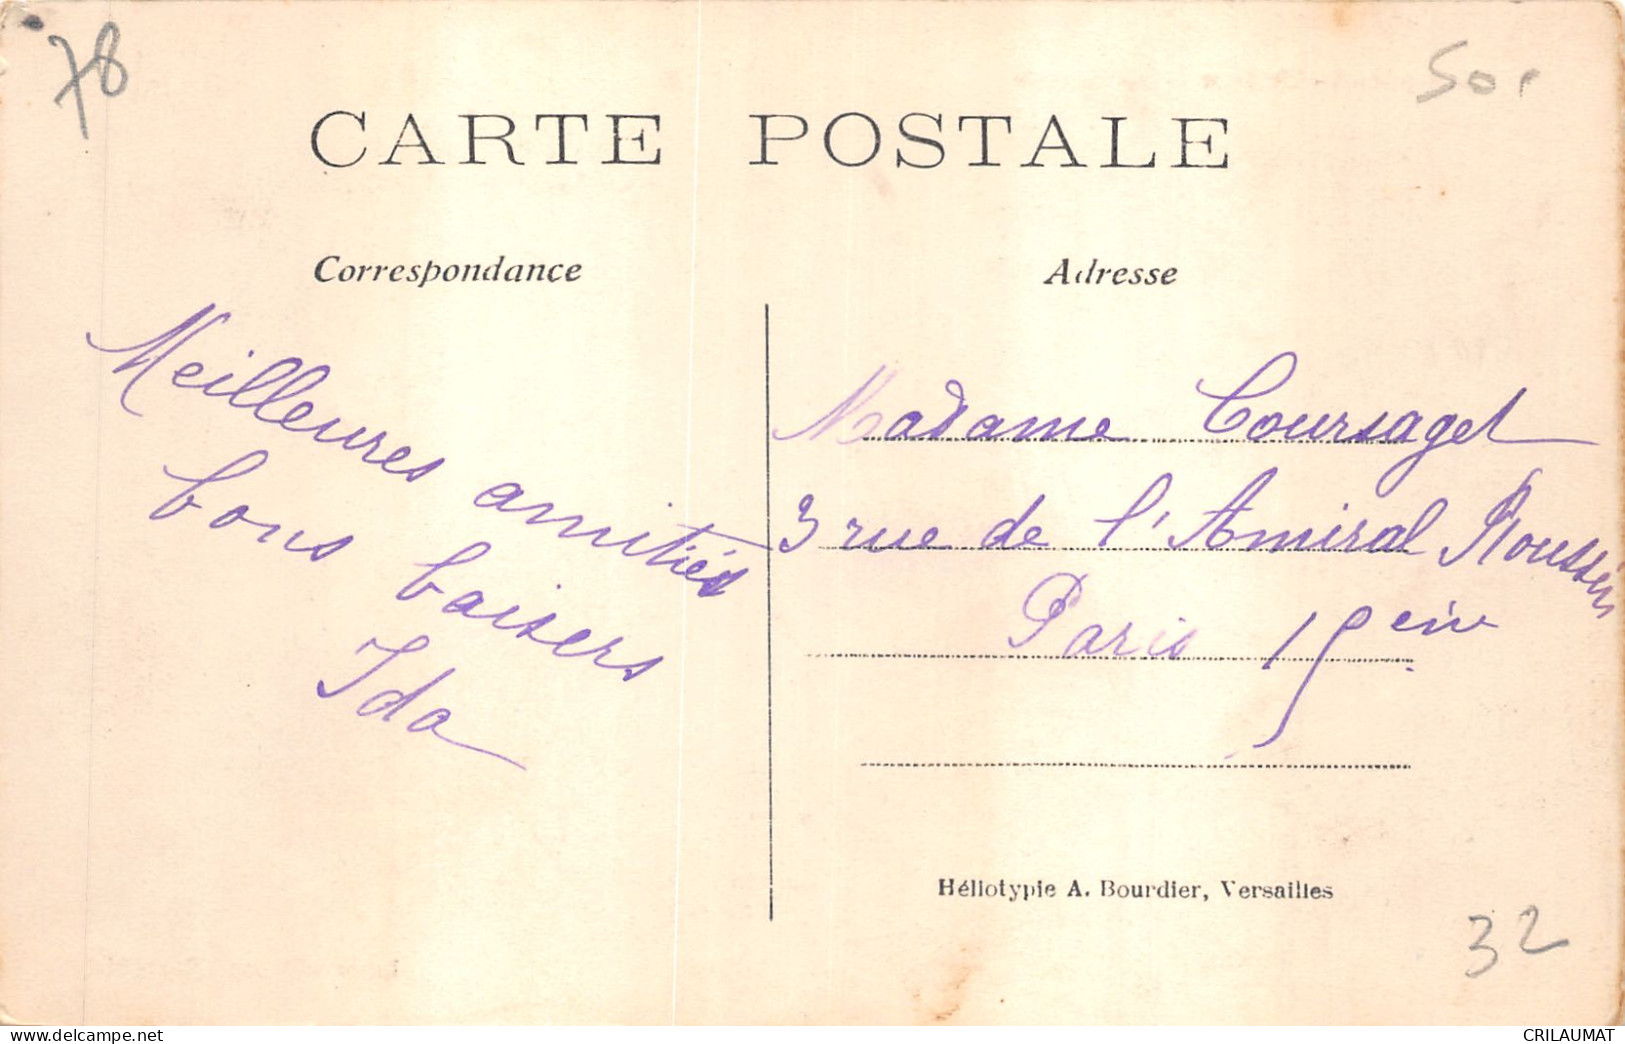 78
50
CARTE POSTALE
Correspondance
Adresse
Meilleures amitiés
bons baisers
Ida
Madame Coursaget
3 rue de l'Amiral Roussin
Paris 15eme
Héliotypie A. Bourdier, Versailles
32
www.delcampe.net
CRILAUMAT